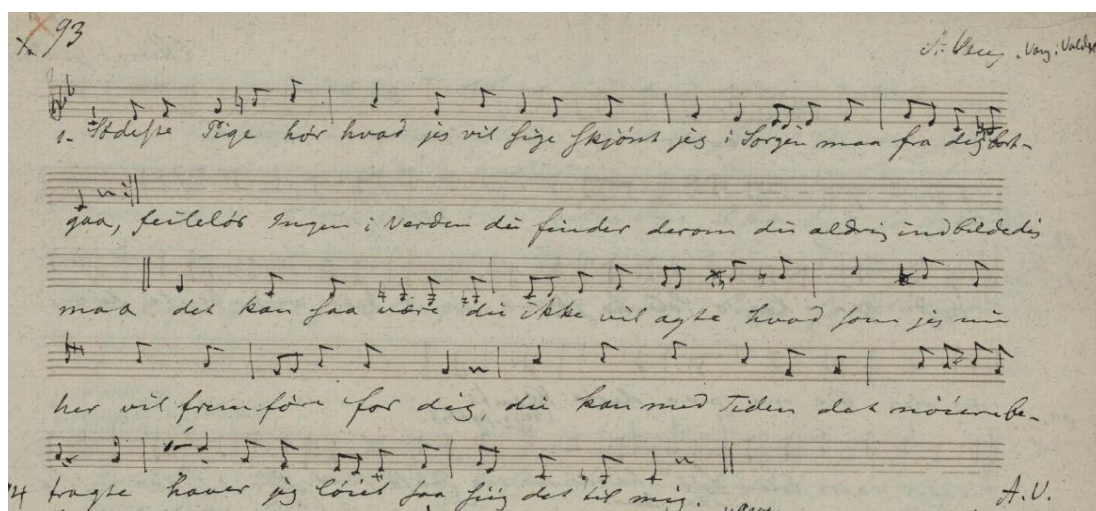 X. 93
A. Vang, Vang i Valdres
1. Södeste Pige hör hvad jeg vil sige skjönt jeg i Sorgen maa fra dig bort-
gaa, feilelös Ingen i Verden du finder derom du aldrig indbilde dig
maa det kan saa være du ikke vil agte hvad som jeg nu
her vil fremföre for dig, du kan med Tiden det nöiere be-
tragte haver jeg löiet saa siig det til mig.
A.V.